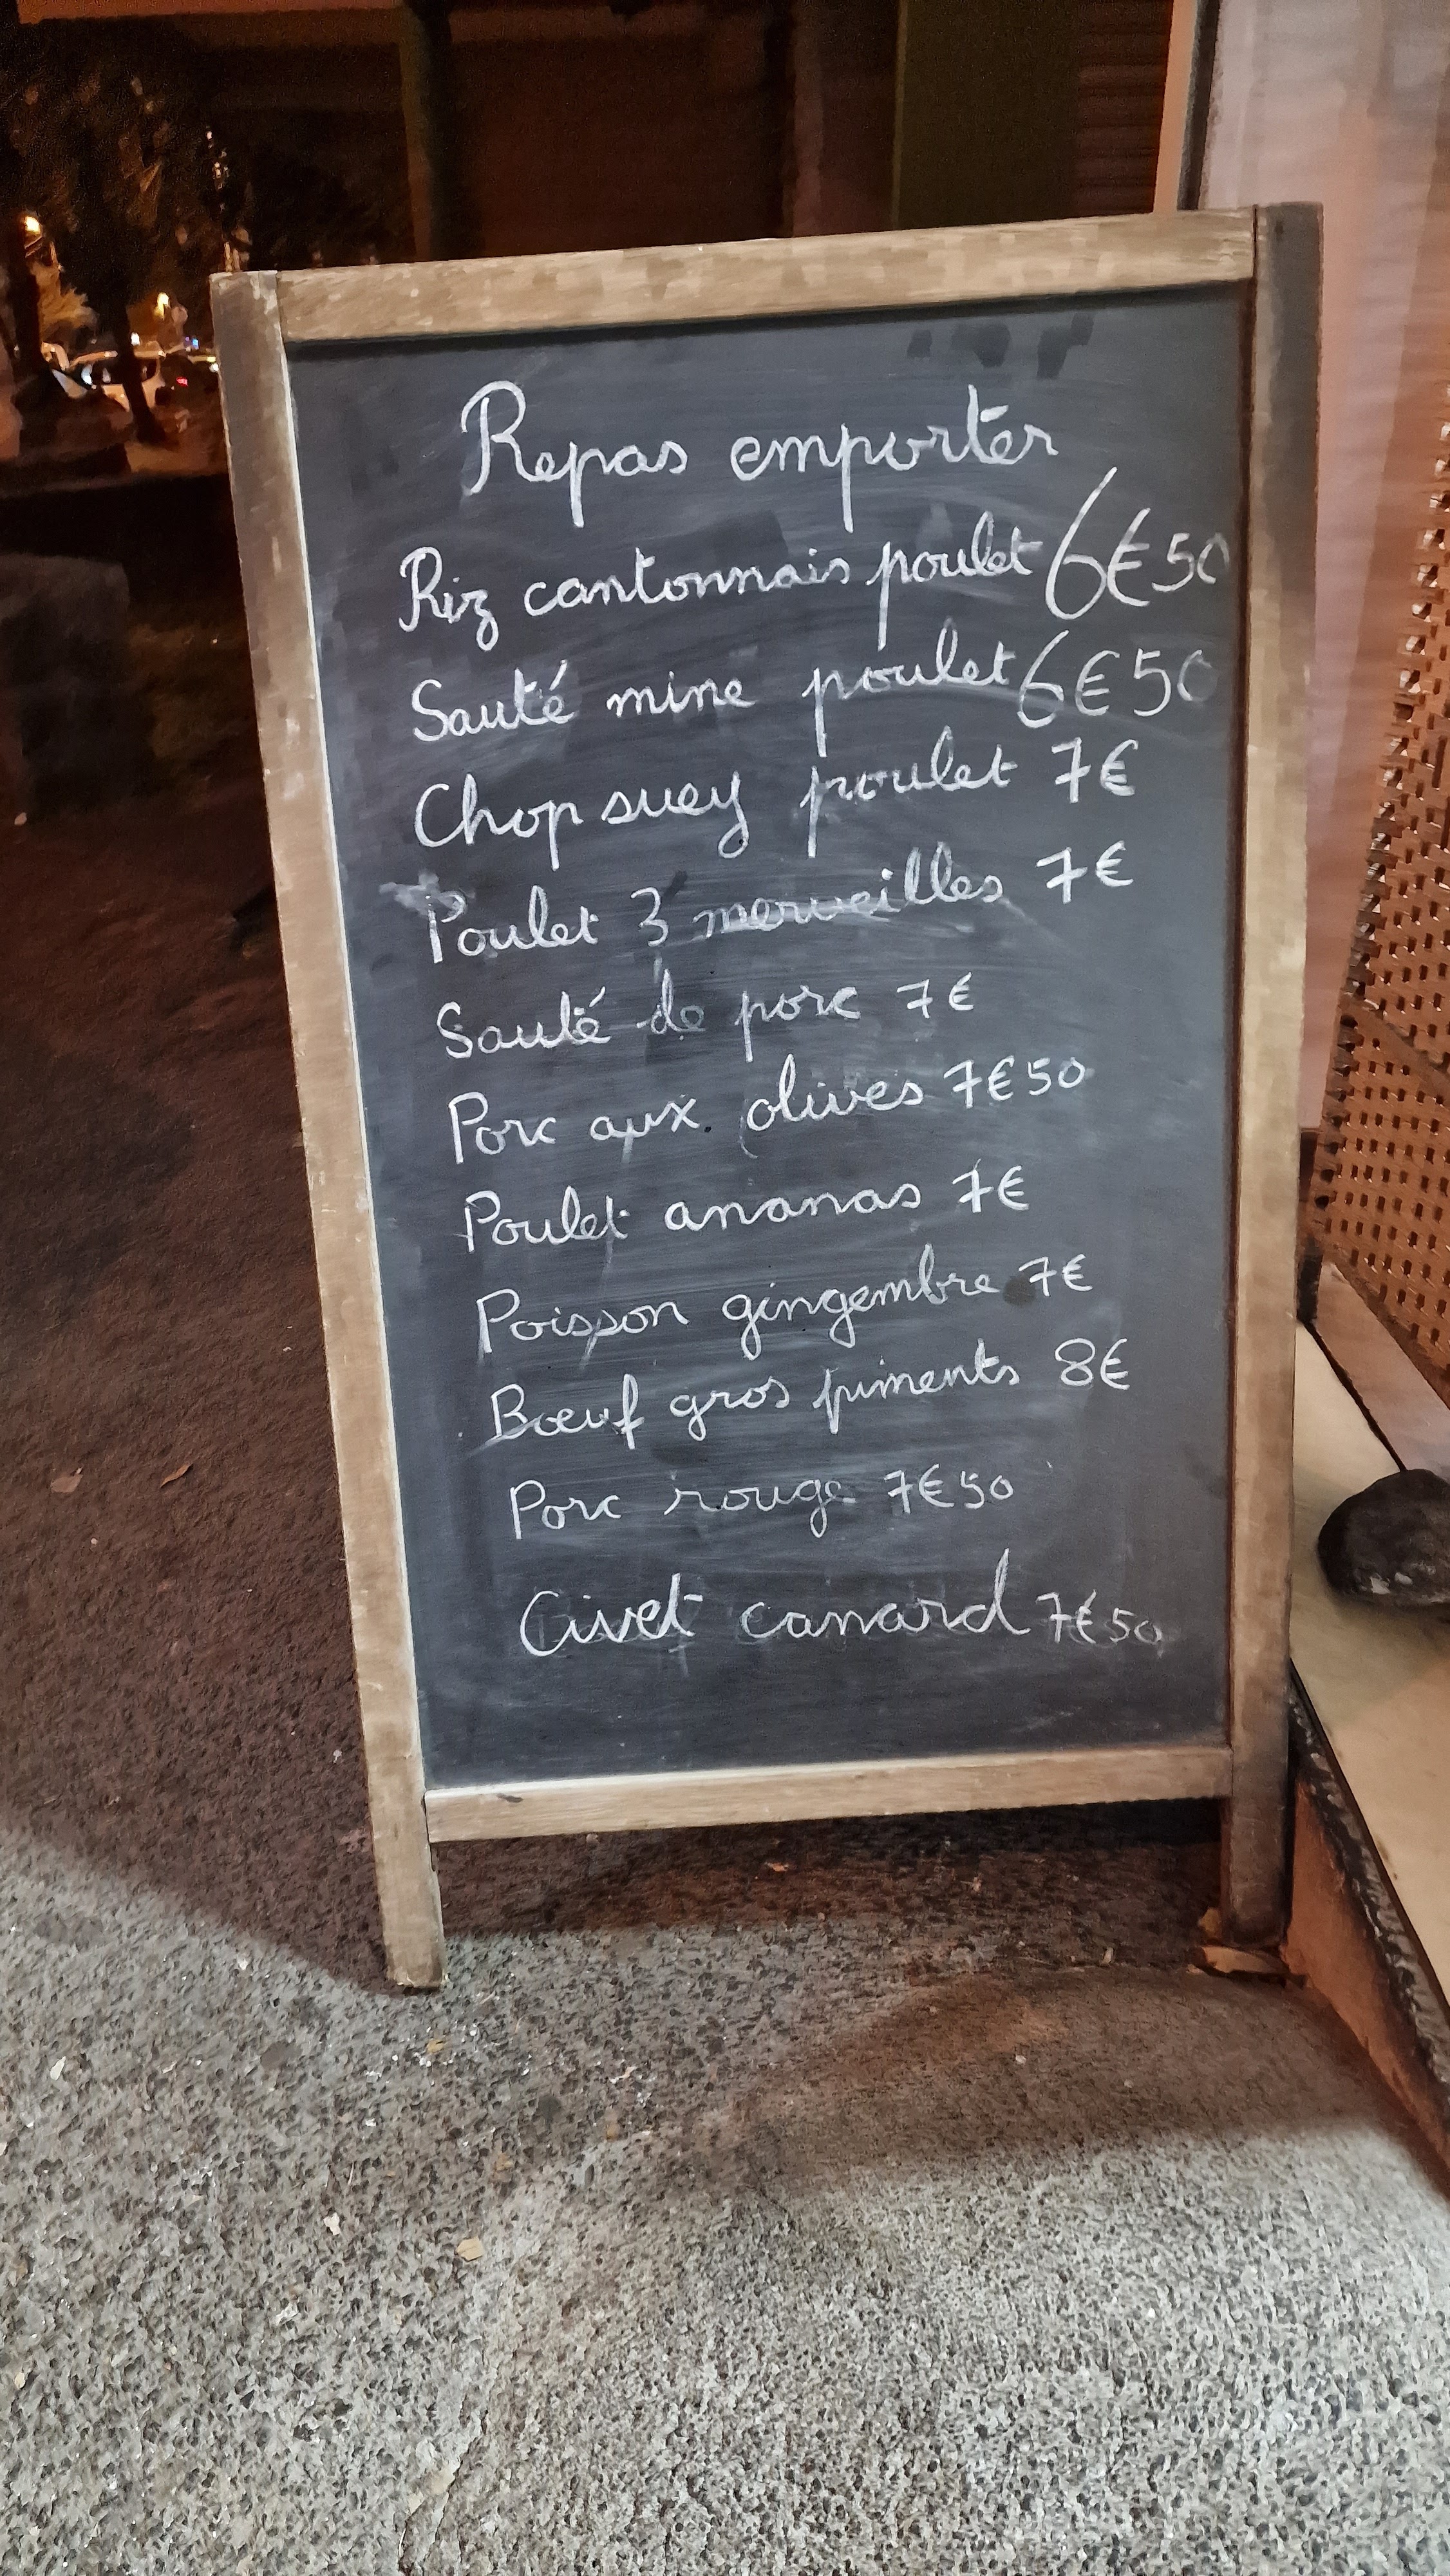 Repas emporter
Riz cantonnais poulet 6€50
Sauté mine poulet 6€50
Chop suey poulet 7€
Poulet 3 merveilles 7€
Sauté de porc 7€
Porc aux olives 7€50
Poulet ananas 7€
Poisson gingembre 7€
Bœuf gros piments 8€
Porc rouge 7€50
Civet canard 7€50